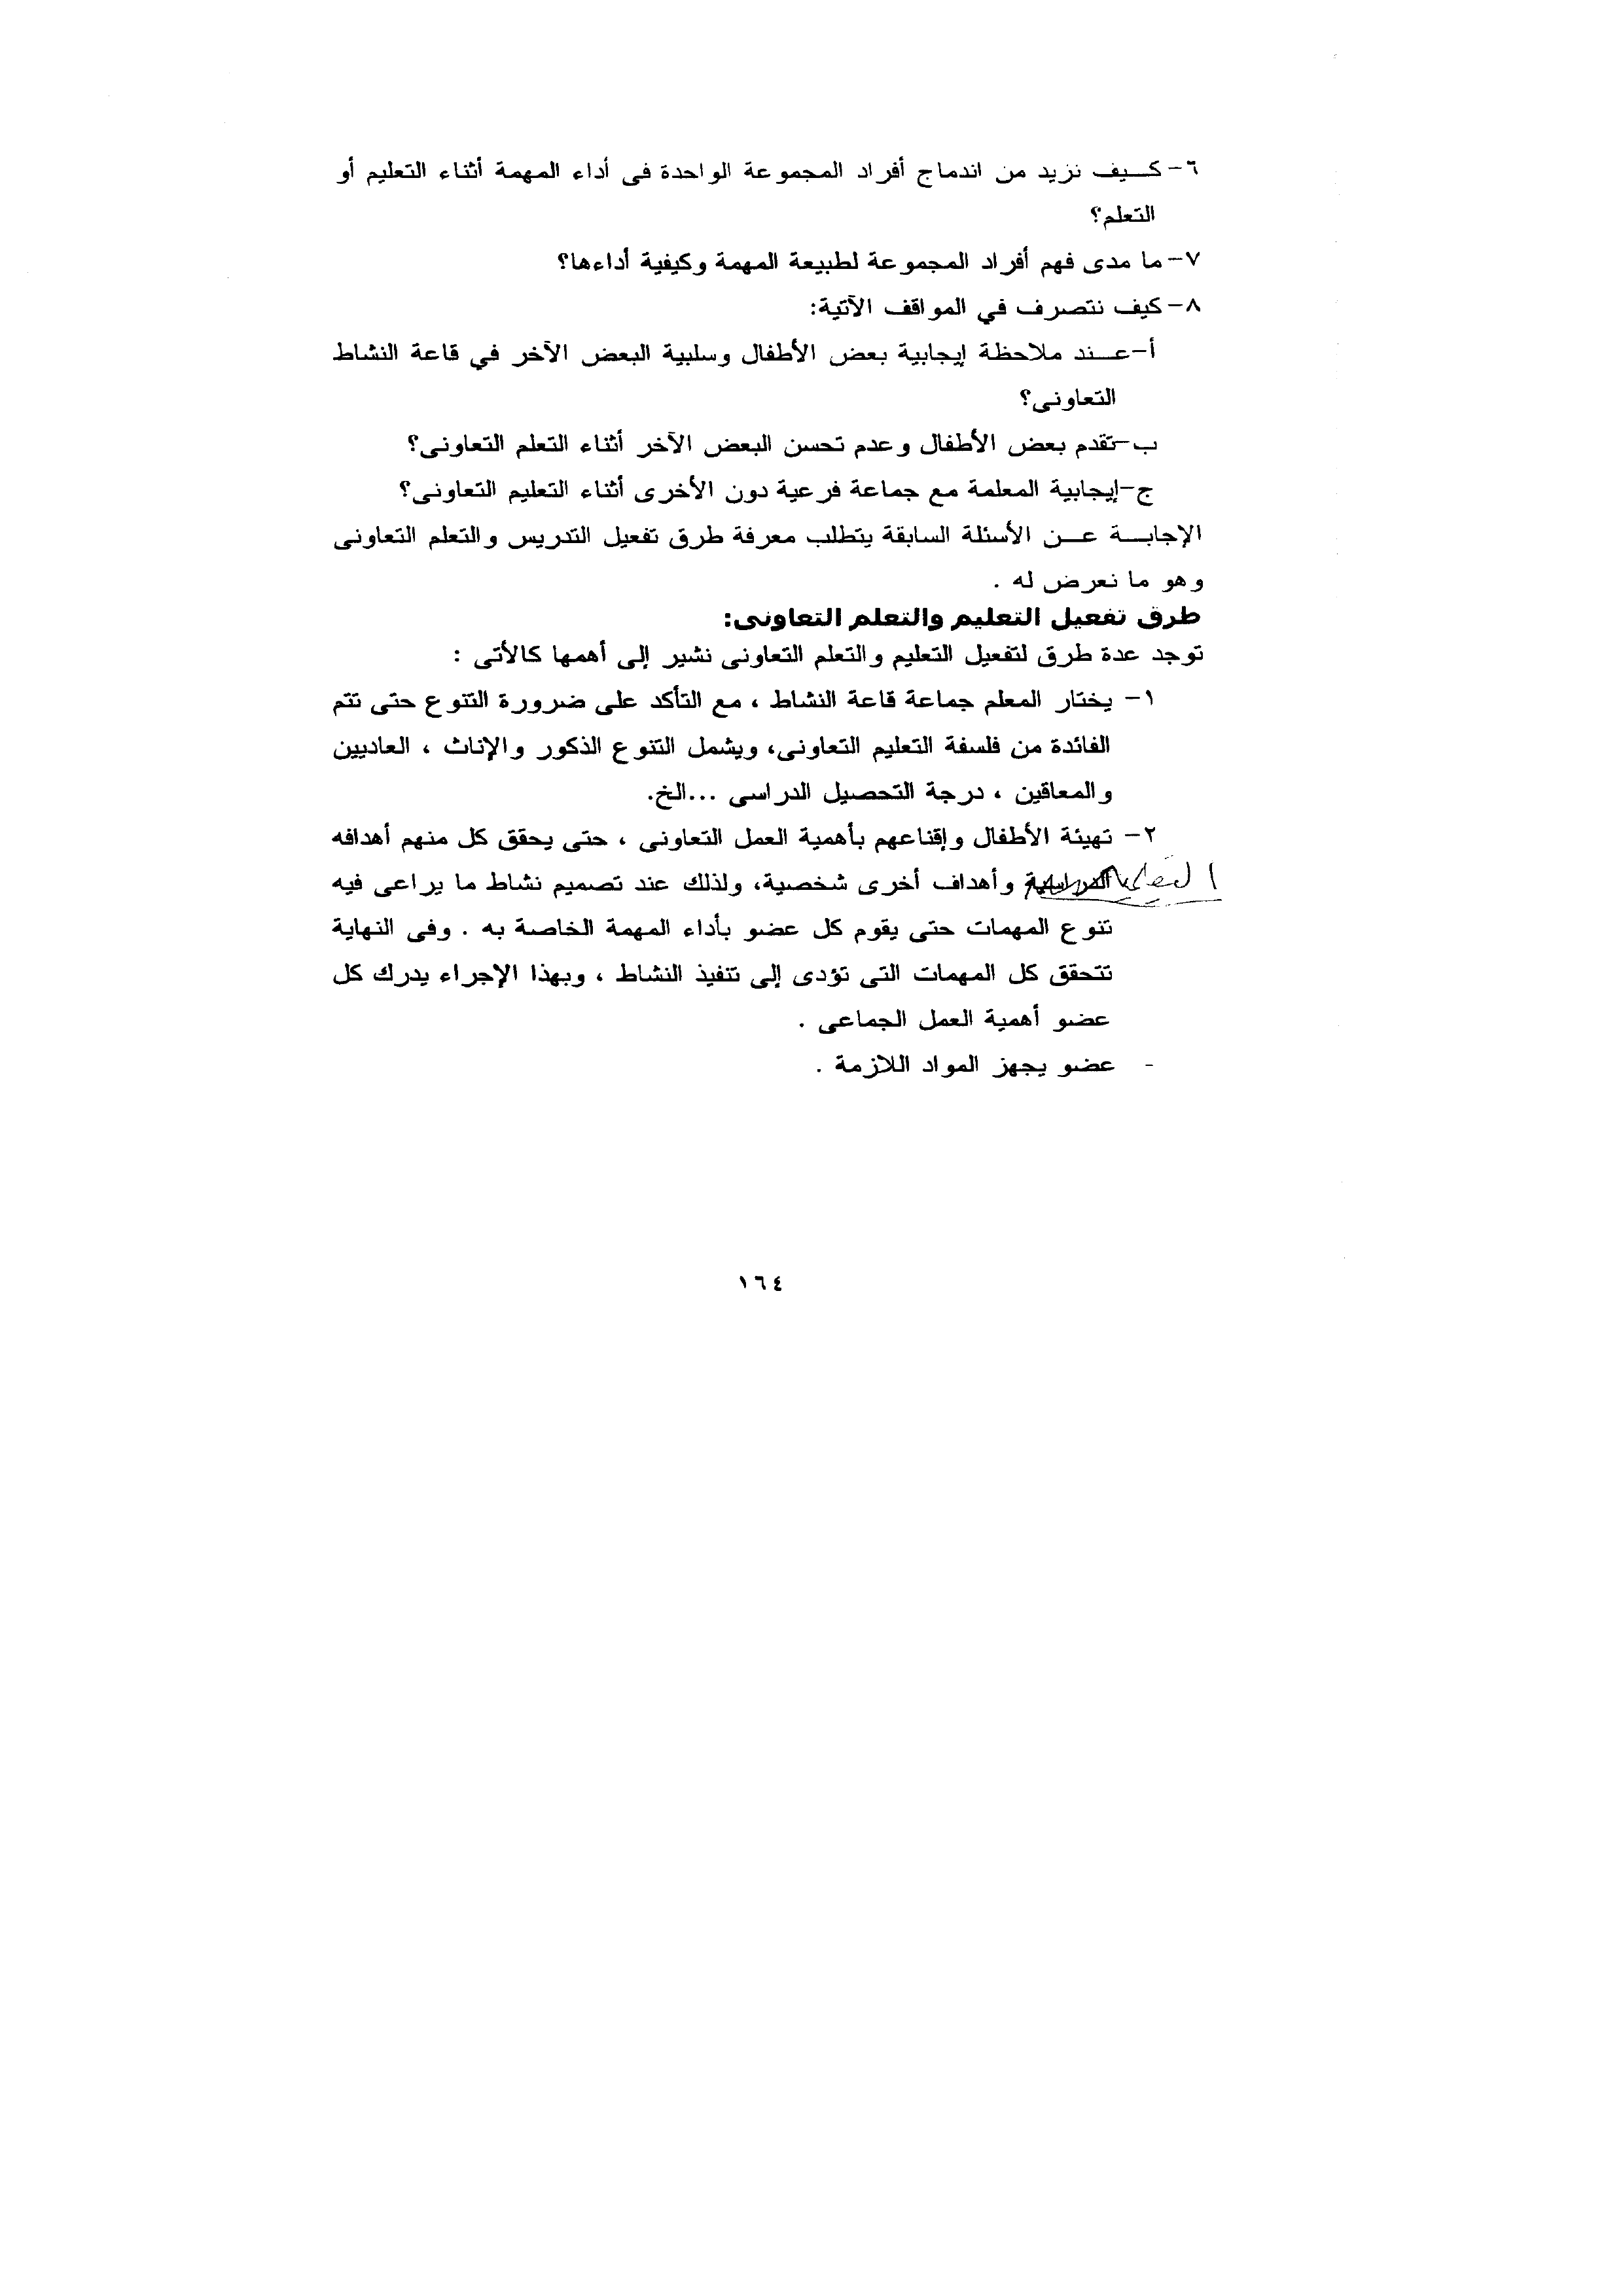 ٦- كـــيف نزيد من اندماج أفراد المجموعة الواحدة فى أداء المهمة أثناء التعليم أو
التعلم؟
٧- ما مدى فهم أفراد المجموعة لطبيعة المهمة وكيفية أداءها؟
٨- كيف نتصرف في المواقف الآتية:
أ- عـــند ملاحظة إيجابية بعض الأطفال وسلبية البعض الآخر في قاعة النشاط
التعاونى؟
ب- تقدم بعض الأطفال وعدم تحسن البعض الآخر أثناء التعلم التعاونى؟
ج- إيجابية المعلمة مع جماعة فرعية دون الأخرى أثناء التعليم التعاونى؟
الإجابـــة عـــن الأسئلة السابقة يتطلب معرفة طرق تفعيل التدريس والتعلم التعاونى
وهو ما نعرض له .
طرق تفعيل التعليم والتعلم التعاونى:
توجد عدة طرق لتفعيل التعليم والتعلم التعاونى نشير إلى أهمها كالأتى :
١- يختار المعلم جماعة قاعة النشاط ، مع التأكد على ضرورة التنوع حتى تتم
الفائدة من فلسفة التعليم التعاونى، ويشمل التنوع الذكور والإناث ، العاديين
والمعاقين ، درجة التحصيل الدراسى ...الخ.
٢- تهيئة الأطفال وإقناعهم بأهمية العمل التعاونى ، حتى يحقق كل منهم أهدافه
وأهداف أخرى شخصية، ولذلك عند تصميم نشاط ما يراعى فيه
تنوع المهمات حتى يقوم كل عضو بأداء المهمة الخاصة به . وفى النهاية
تتحقق كل المهمات التى تؤدى إلى تنفيذ النشاط ، وبهذا الإجراء يدرك كل
عضو أهمية العمل الجماعى .
- عضو يجهز المواد اللازمة .
١٦٤